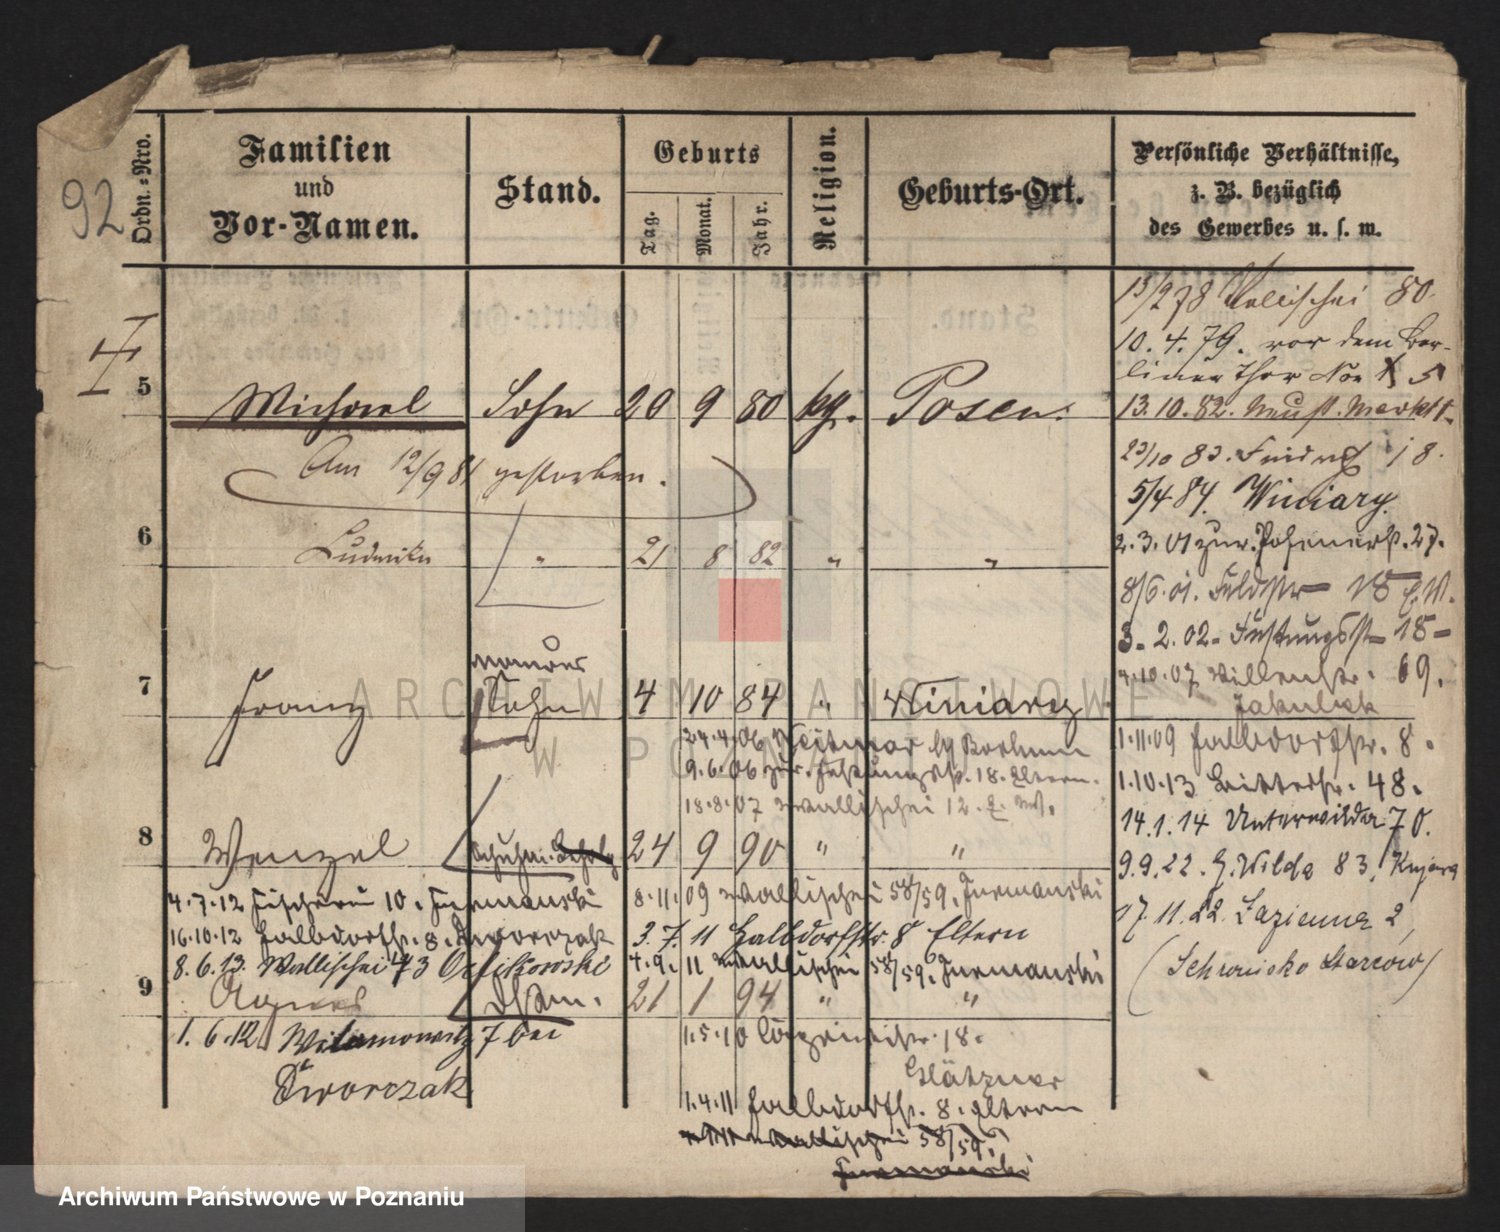 92
Ordn.-Nro.
Familien
und
Vor-Namen.
Stand.
Geburts
Tag.
Monat.
Jahr.
Religion.
Geburts-Ort.
Persönliche Verhältnisse,
z. B. bezüglich
des Gewerbes u. s. w.
13/2 78 Wallischei 80.
10. 4. 79. vor dem Ber-
liner Thor No 5
5 Michael Sohn 20 9 80 kg. Posen.
13. 10. 82. Neust. Markt
Am 12/9 81 gestorben.
23/10 83. 18.
5/4 84. Winiary.
6 Ludwika " 21 8 82 " "
2. 3. 01 zur. Posenerst. 27.
8/6. 01. Feldstr 18 E. W.
3. 2. 02. Festungsst 18
7 Franz Sohn 4 10 84 " Winiary
4. 10. 07 69.
24. 4. 06
1. 11. 09 Halbdorfstr. 8.
9. 6. 06 zur. Festungsst. 18. Eltern.
1. 10. 13 48.
18. 8. 07 Wallischei 12. E. W.
14. 1. 14 Unterwilda 70.
8 Wenzel 24 9 90 " "
9. 9. 22. G. Wilda 83.
4. 7. 12 Fischerei 10. Furmanski
8. 11. 09 Wallischei 58/59. Furmanski
16. 10. 12 Halbdorfstr. 8. Dworczak
3. 7. 11 Halbdorfstr. 8 Eltern
17. 11. 22. Lazienna 2,
8. 6. 13. Wallischei 43
4. 9. 11 Wallischei 58/59. Furmanski
9 Agnes 21 1 94 " "
1. 6. 12 Wilamowitz 7 bei
Dworczak
1. 5. 10 18.
1. 4. 11 Halbdorfstr. 8. Eltern
Wallischei 58/59.
Furmanski
ARCHIWUM PAŃSTWOWE
W POZNANIU
Archiwum Państwowe w Poznaniu